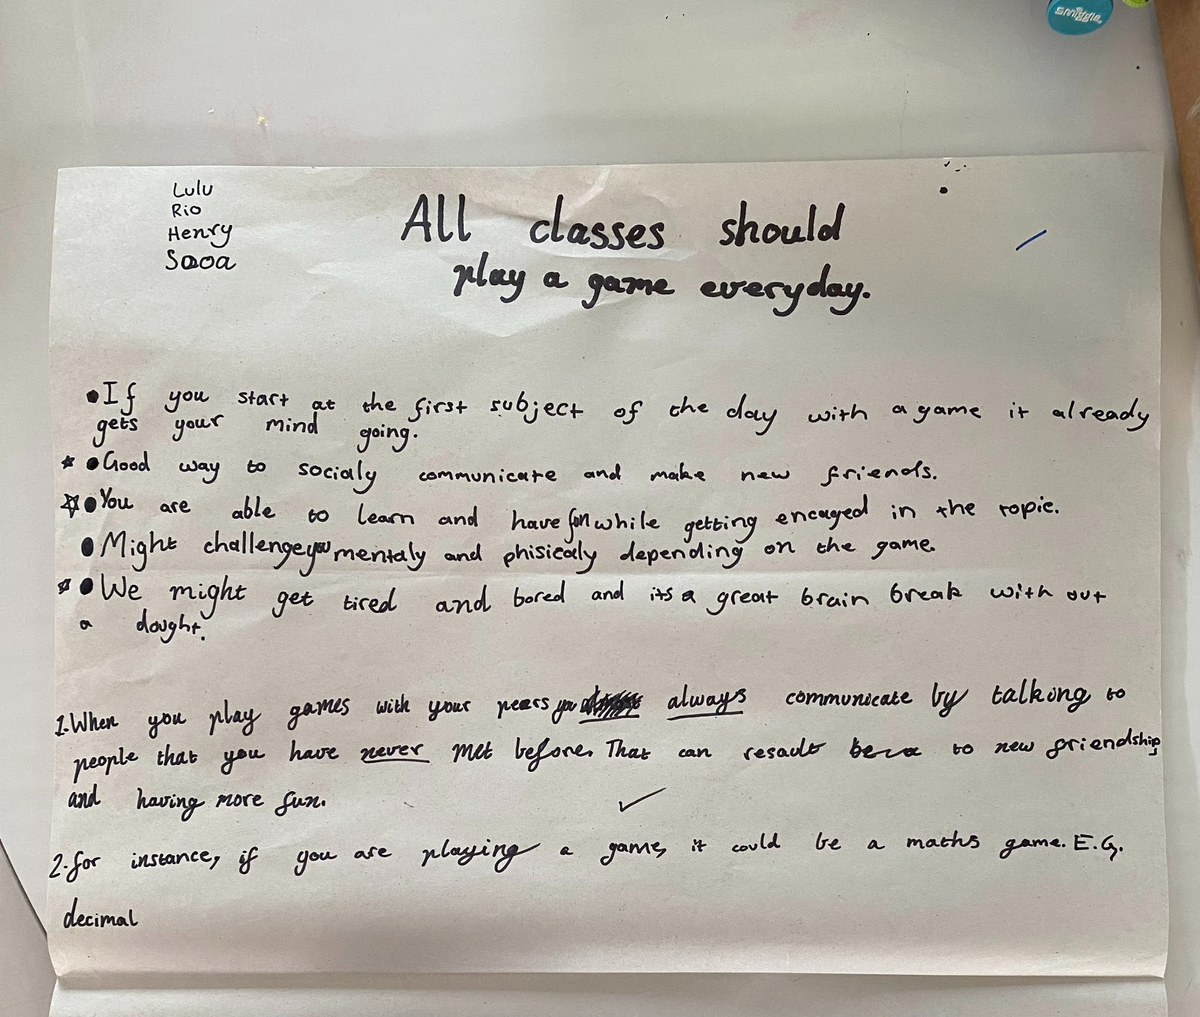 smiggle
Lulu
Rio
Henry
All classes should
play a game everyday.
• If you start at the first subject of the day with a game it already
gets your mind going.
☆ • Good way to socialy communicate and make new friends.
☆ • You are able to learn and have fun while getting encaged in the topic.
• Might challenge you mentaly and phisicaly depending on the game.
☆ • We might get tired and bored and its a great brain break with out
a dought.
1. When you play games with your peers you always communicate by talking to
people that you have never met before. That can resault to new friendships
and having more fun.
2. for instance, if you are playing a game, it could be a maths game. E.G.
decimal